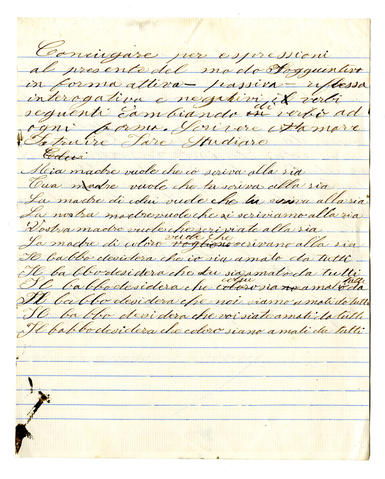 Coniugare per espressioni
al presente del modo Soggiuntivo
in forma attiva – passiva – riflessa
interogativa e negativi di verbi
seguenti Cambiando verbo ad
ogni forma. Scrivere Amare
Istruire Fare Studiare
Mia madre vuole che io scriva alla zia
Tua madre vuole che tu scriva alla zia
La madre di colui vuole che scriva alla zia
La nostra madre vuole che si scriviamo alla zia
Vostra madre vuole che scriviate alla zia
La madre di coloro vuole che scrivano alla zia
Il babbo desidera che io sia amato da tutti
Il babbo desidera che tu sia amato da tutti
Il babbo desidera che colui sia amato da tutti
Il babbo desidera che noi siamo amati da tutti
Il babbo desidera che voi siate amati da tutti
Il babbo desidera che coloro siano amati da tutti